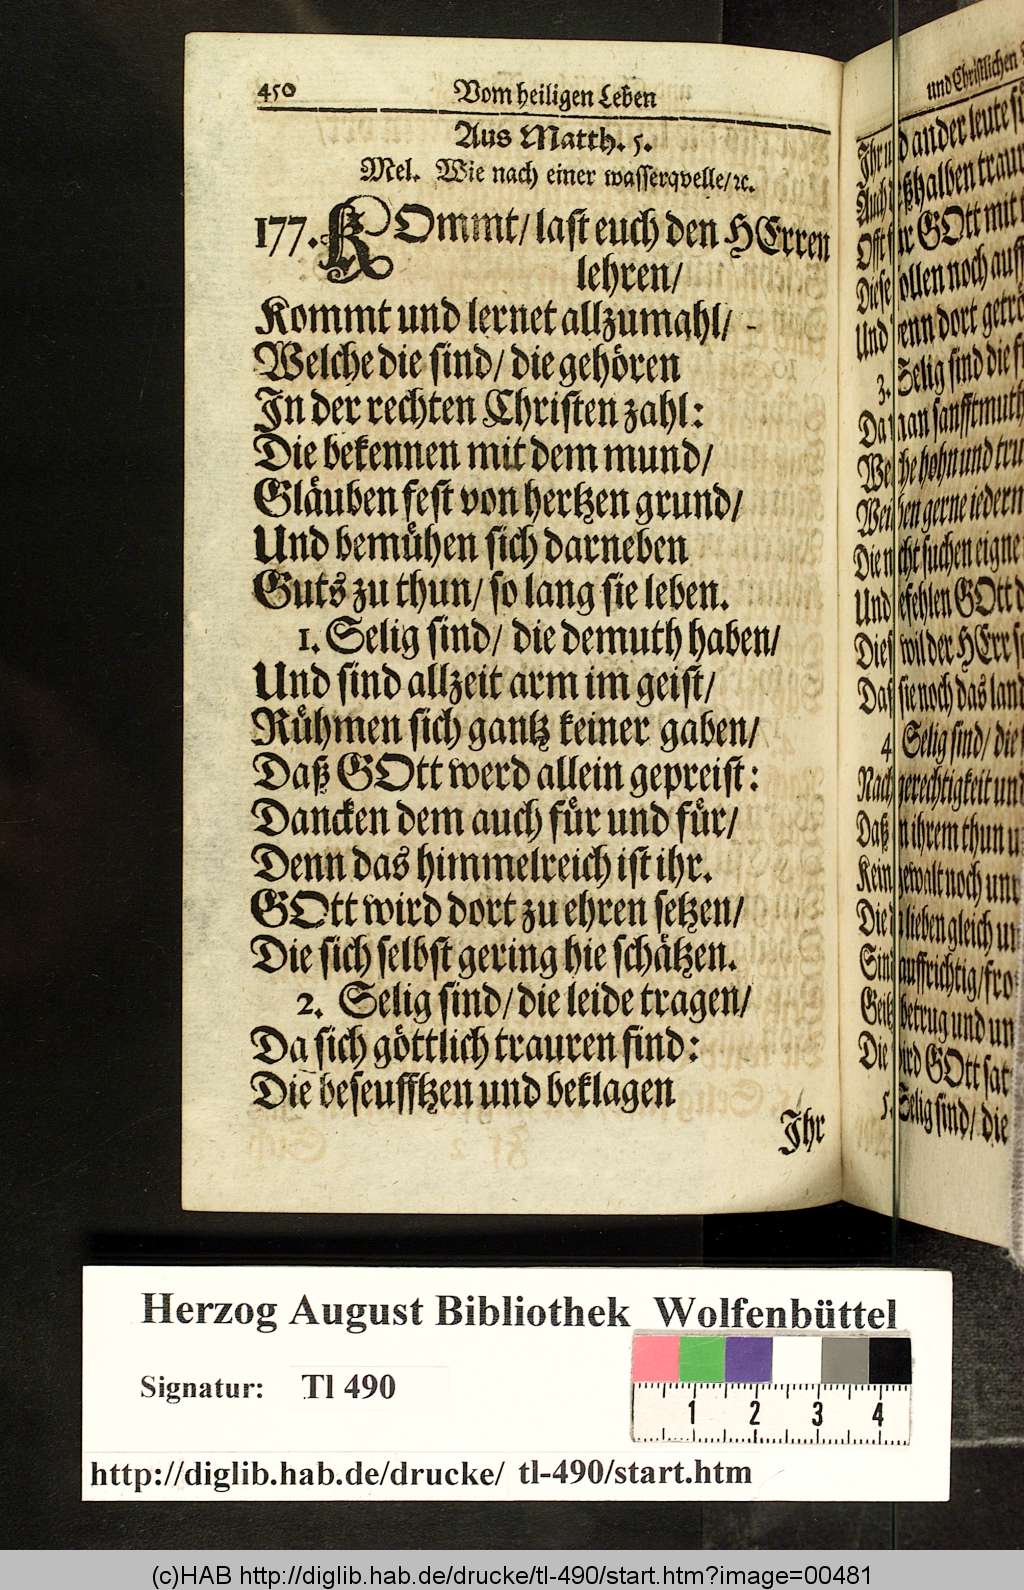 450 Vom heiligen Leben
Aus Matth. 5.
Mel. Wie nach einer wasserqvelle/ꝛc.
177. KOmmt/ last euch den HErren
lehren/
Kommt und lernet allzumahl/
Welche die sind/ die gehören
In der rechten Christen zahl:
Die bekennen mit dem mund/
Gläuben fest von hertzen grund/
Und bemühen sich darneben
Guts zu thun/ so lang sie leben.
1. Selig sind/ die demuth haben/
Und sind allzeit arm im geist/
Rühmen sich gantz keiner gaben/
Daß GOtt werd allein gepreist:
Dancken dem auch für und für/
Denn das himmelreich ist ihr.
GOtt wird dort zu ehren setzen/
Die sich selbst gering hie schätzen.
2. Selig sind/ die leide tragen/
Da sich göttlich trauren find:
Die beseufftzen und beklagen
Ihr
und Christlichen
ander leute
halben
GOtt mit
noch auff
dort
3. Selig sind die
hohn und
gerne
suchen eigne
Und GOtt
wil der HErr
Daß sie noch das land
4. Selig sind/ die
Nach gerechtigkeit und
Daß ihrem thun
Kein gewalt noch
Die lieben gleich
Sind auffrichtig/
Geitz betrug und
Die GOtt
5. Selig sind/ die
Herzog August Bibliothek Wolfenbüttel
Signatur: Tl 490
1 2 3 4
http://diglib.hab.de/drucke/ tl-490/start.htm
(c)HAB http://diglib.hab.de/drucke/tl-490/start.htm?image=00481